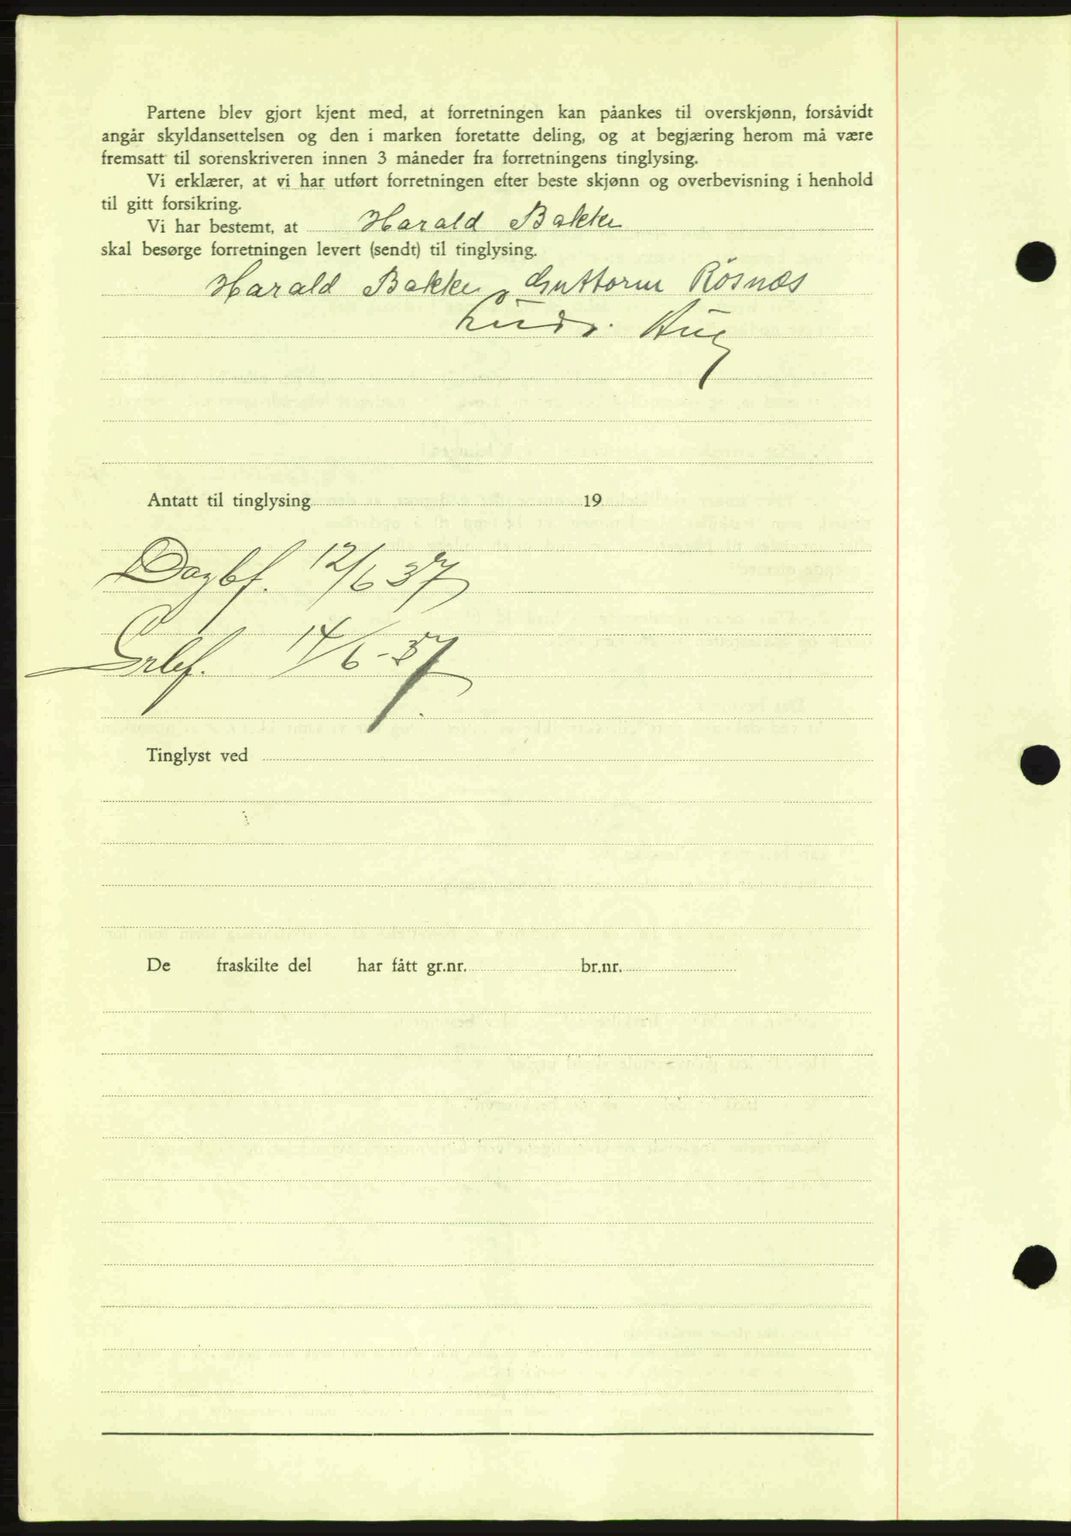 Partene blev gjort kjent med, at forretningen kan påankes til overskjønn, forsåvidt
angår skyldansettelsen og den i marken foretatte deling, og at begjæring herom må være
fremsatt til sorenskriveren innen 3 måneder fra forretningens tinglysing.
Vi erklærer, at vi har utført forretningen efter beste skjønn og overbevisning i henhold
til gitt forsikring.
Vi har bestemt, at Harald Bakke
skal besørge forretningen levert (sendt) til tinglysing.
Harald Bakke, Guttorm Rösnæs
Aug
Antatt til tinglysing 19
Dagbf. 12/6 37
Grbf. 14/6-37.
Tinglyst ved
De fraskilte del har fått gr.nr. br.nr.